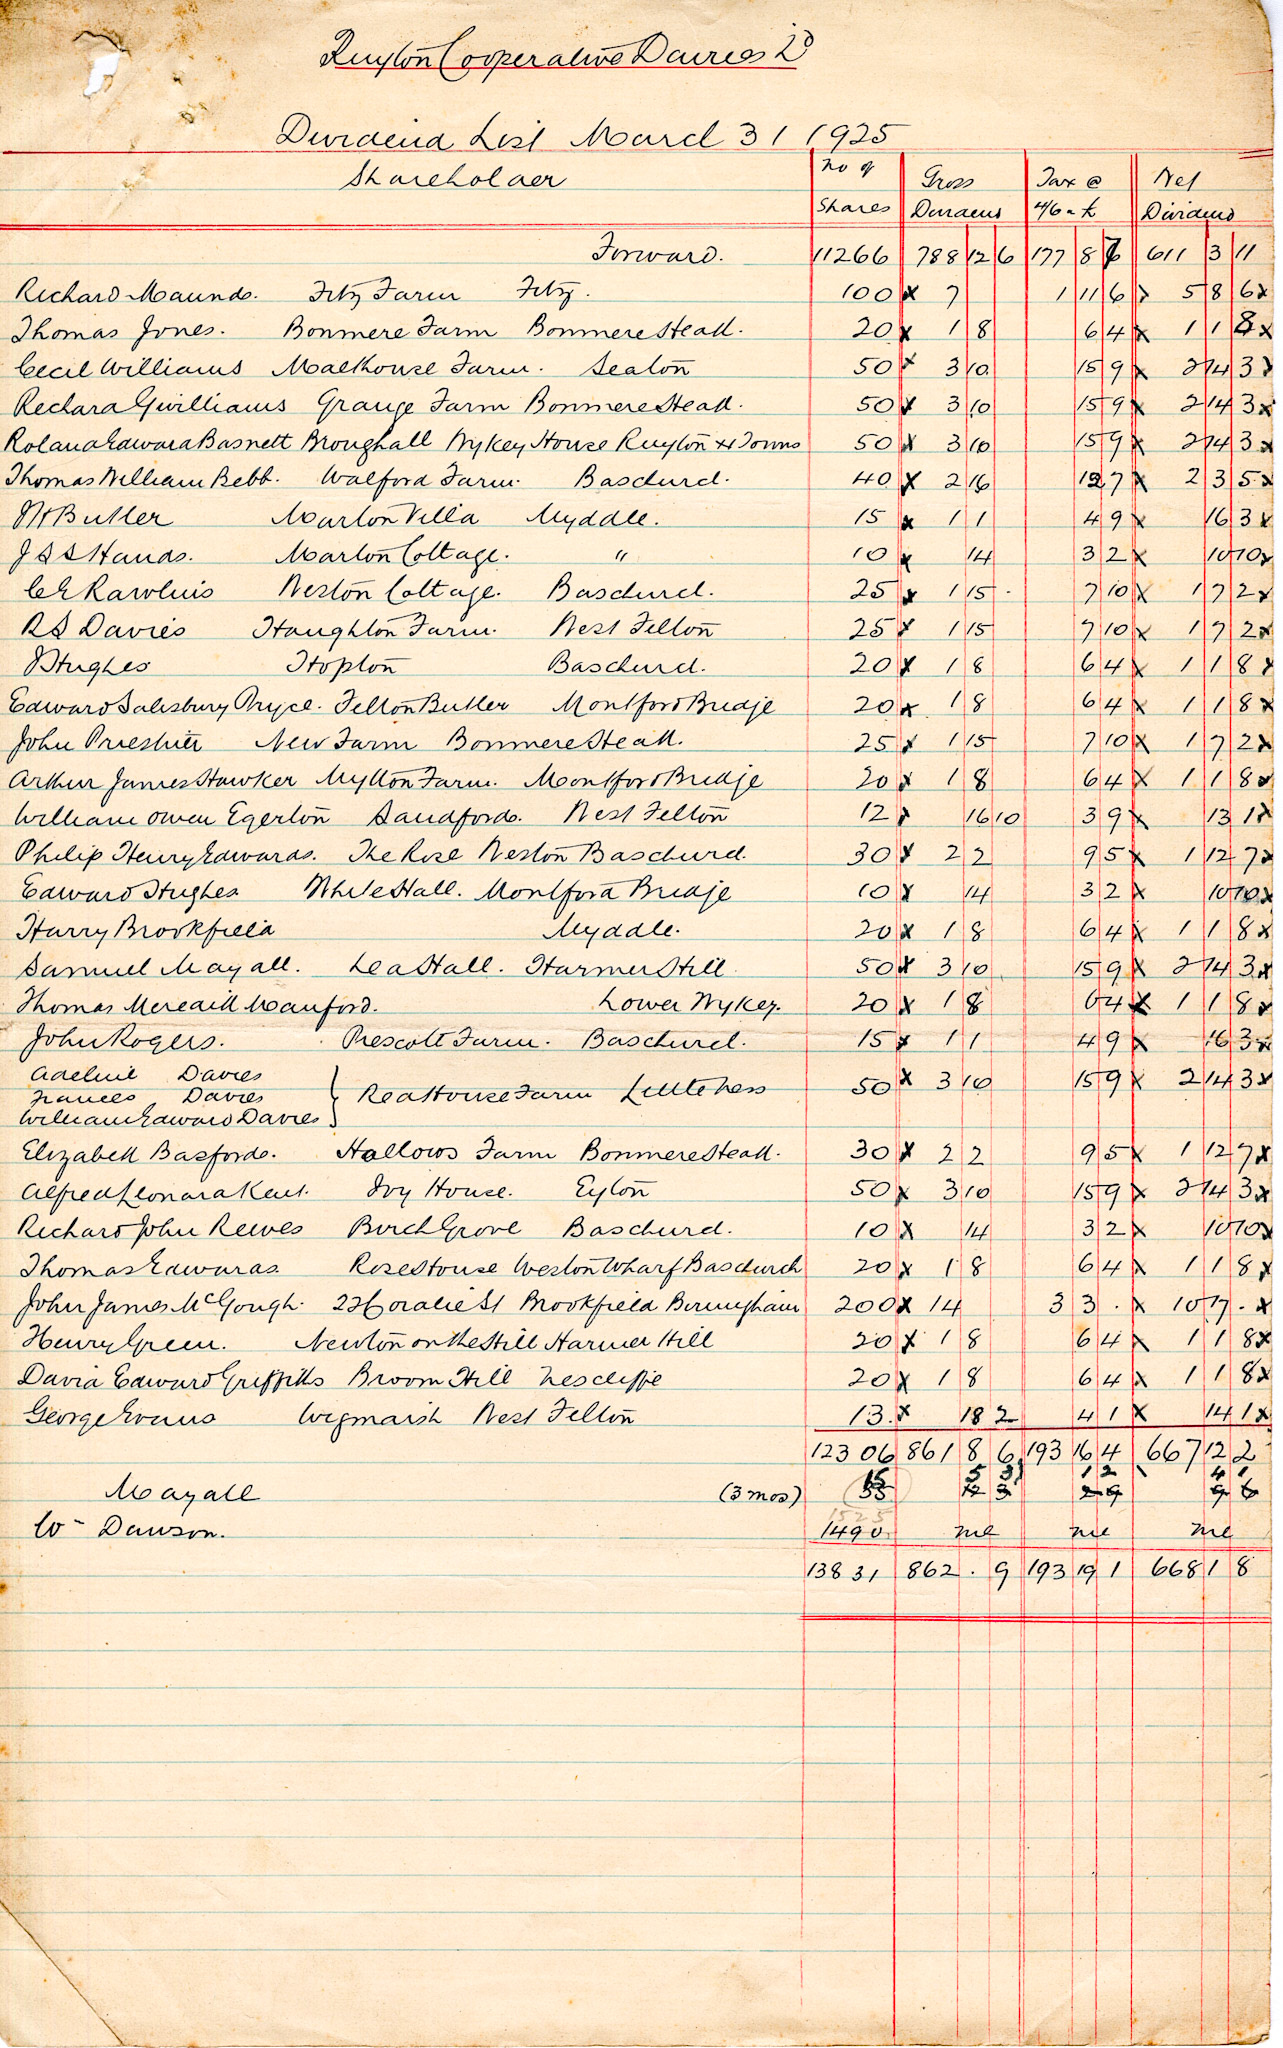 Ruyton Cooperative Dairies Ld
Dividend List March 31 1925
Shareholder No of Shares Gross Dividend Tax @ 4/6 in £ Net Dividend
Forward. 11266 788 12 6 177 8 7 611 3 11
Richard Maund. Fitz Farm Fitz. 100 x 7 1 11 6 x 5 8 6 x
Thomas Jones. Bonmere Farm Bonmere Heath. 20 x 1 8 6 4 x 1 1 8 x
Cecil Williams Malthouse Farm. Seaton 50 x 3 10 15 9 x 2 14 3 x
Richard Gwilliams Grange Farm Bonmere Heath. 50 x 3 10 15 9 x 2 14 3 x
Roland Edward Basnett Broughall Wykey House Ruyton XI Towns 50 x 3 10 15 9 x 2 14 3 x
Thomas William Bebb. Walford Farm. Baschurch. 40 x 2 16 12 7 x 2 3 5 x
W Butler Marton Villa Myddle. 15 x 1 1 4 9 x 16 3 x
J S S Hands. Marton Cottage. " 10 x 14 3 2 x 10 10 x
C E Rawlins Weston Cottage. Baschurch. 25 x 1 15 . 7 10 x 1 7 2 x
R S Davies Haughton Farm. West Felton 25 x 1 15 7 10 x 1 7 2 x
B Hughes Hopton Baschurch. 20 x 1 8 6 4 x 1 1 8 x
Edward Salisbury Pryce. Felton Butler Montford Bridge 20 x 1 8 6 4 x 1 1 8 x
John Priestner New Farm Bonmere Heath. 25 x 1 15 7 10 x 1 7 2 x
Arthur James Hawker Mytton Farm. Montford Bridge 20 x 1 8 6 4 x 1 1 8 x
William Owen Egerton Sandford. West Felton 12 x 16 10 3 9 x 13 1 x
Philip Henry Edwards. The Rose Weston Baschurch. 30 x 2 2 9 5 x 1 12 7 x
Edward Hughes White Hall. Montford Bridge 10 x 14 3 2 x 10 10 x
Harry Brookfield Myddle. 20 x 1 8 6 4 x 1 1 8 x
Samuel Mayall. Lea Hall. Harmer Hill 50 x 3 10 15 9 x 2 14 3 x
Thomas Meredith Manford. Lower Wykey. 20 x 1 8 6 4 x 1 1 8 x
John Rogers. Prescott Farm. Baschurch. 15 x 1 1 4 9 x 16 3 x
Adeline Davies
Frances Davies } Red House Farm Little Ness 50 x 3 10 15 9 x 2 14 3 x
William Edward Davies
Elizabeth Basford. Hallows Farm Bonmere Heath. 30 x 2 2 9 5 x 1 12 7 x
Alfred Leonard Kent. Ivy House. Eyton 50 x 3 10 15 9 x 2 14 3 x
Richard John Reeves Birch Grove Baschurch. 10 x 14 3 2 x 10 10 x
Thomas Edwards Rose House Weston Wharf Baschurch 20 x 1 8 6 4 x 1 1 8 x
John James McGough. 23 St Brookfield Birmingham 200 x 14 3 3 . x 10 17 . x
Henry Green. Newton on the Hill Harmer Hill 20 x 1 8 6 4 x 1 1 8 x
David Edward Griffiths Broom Hill Nescliffe 20 x 1 8 6 4 x 1 1 8 x
George Evans Wigmarsh West Felton 13 . x 18 2 4 1 x 14 1 x
12306 861 8 6 193 16 4 667 12 2
Mayall (3 mos)
Co - Dawson. 1490 nil nil nil
13831 862 . 9 193 19 1 668 1 8